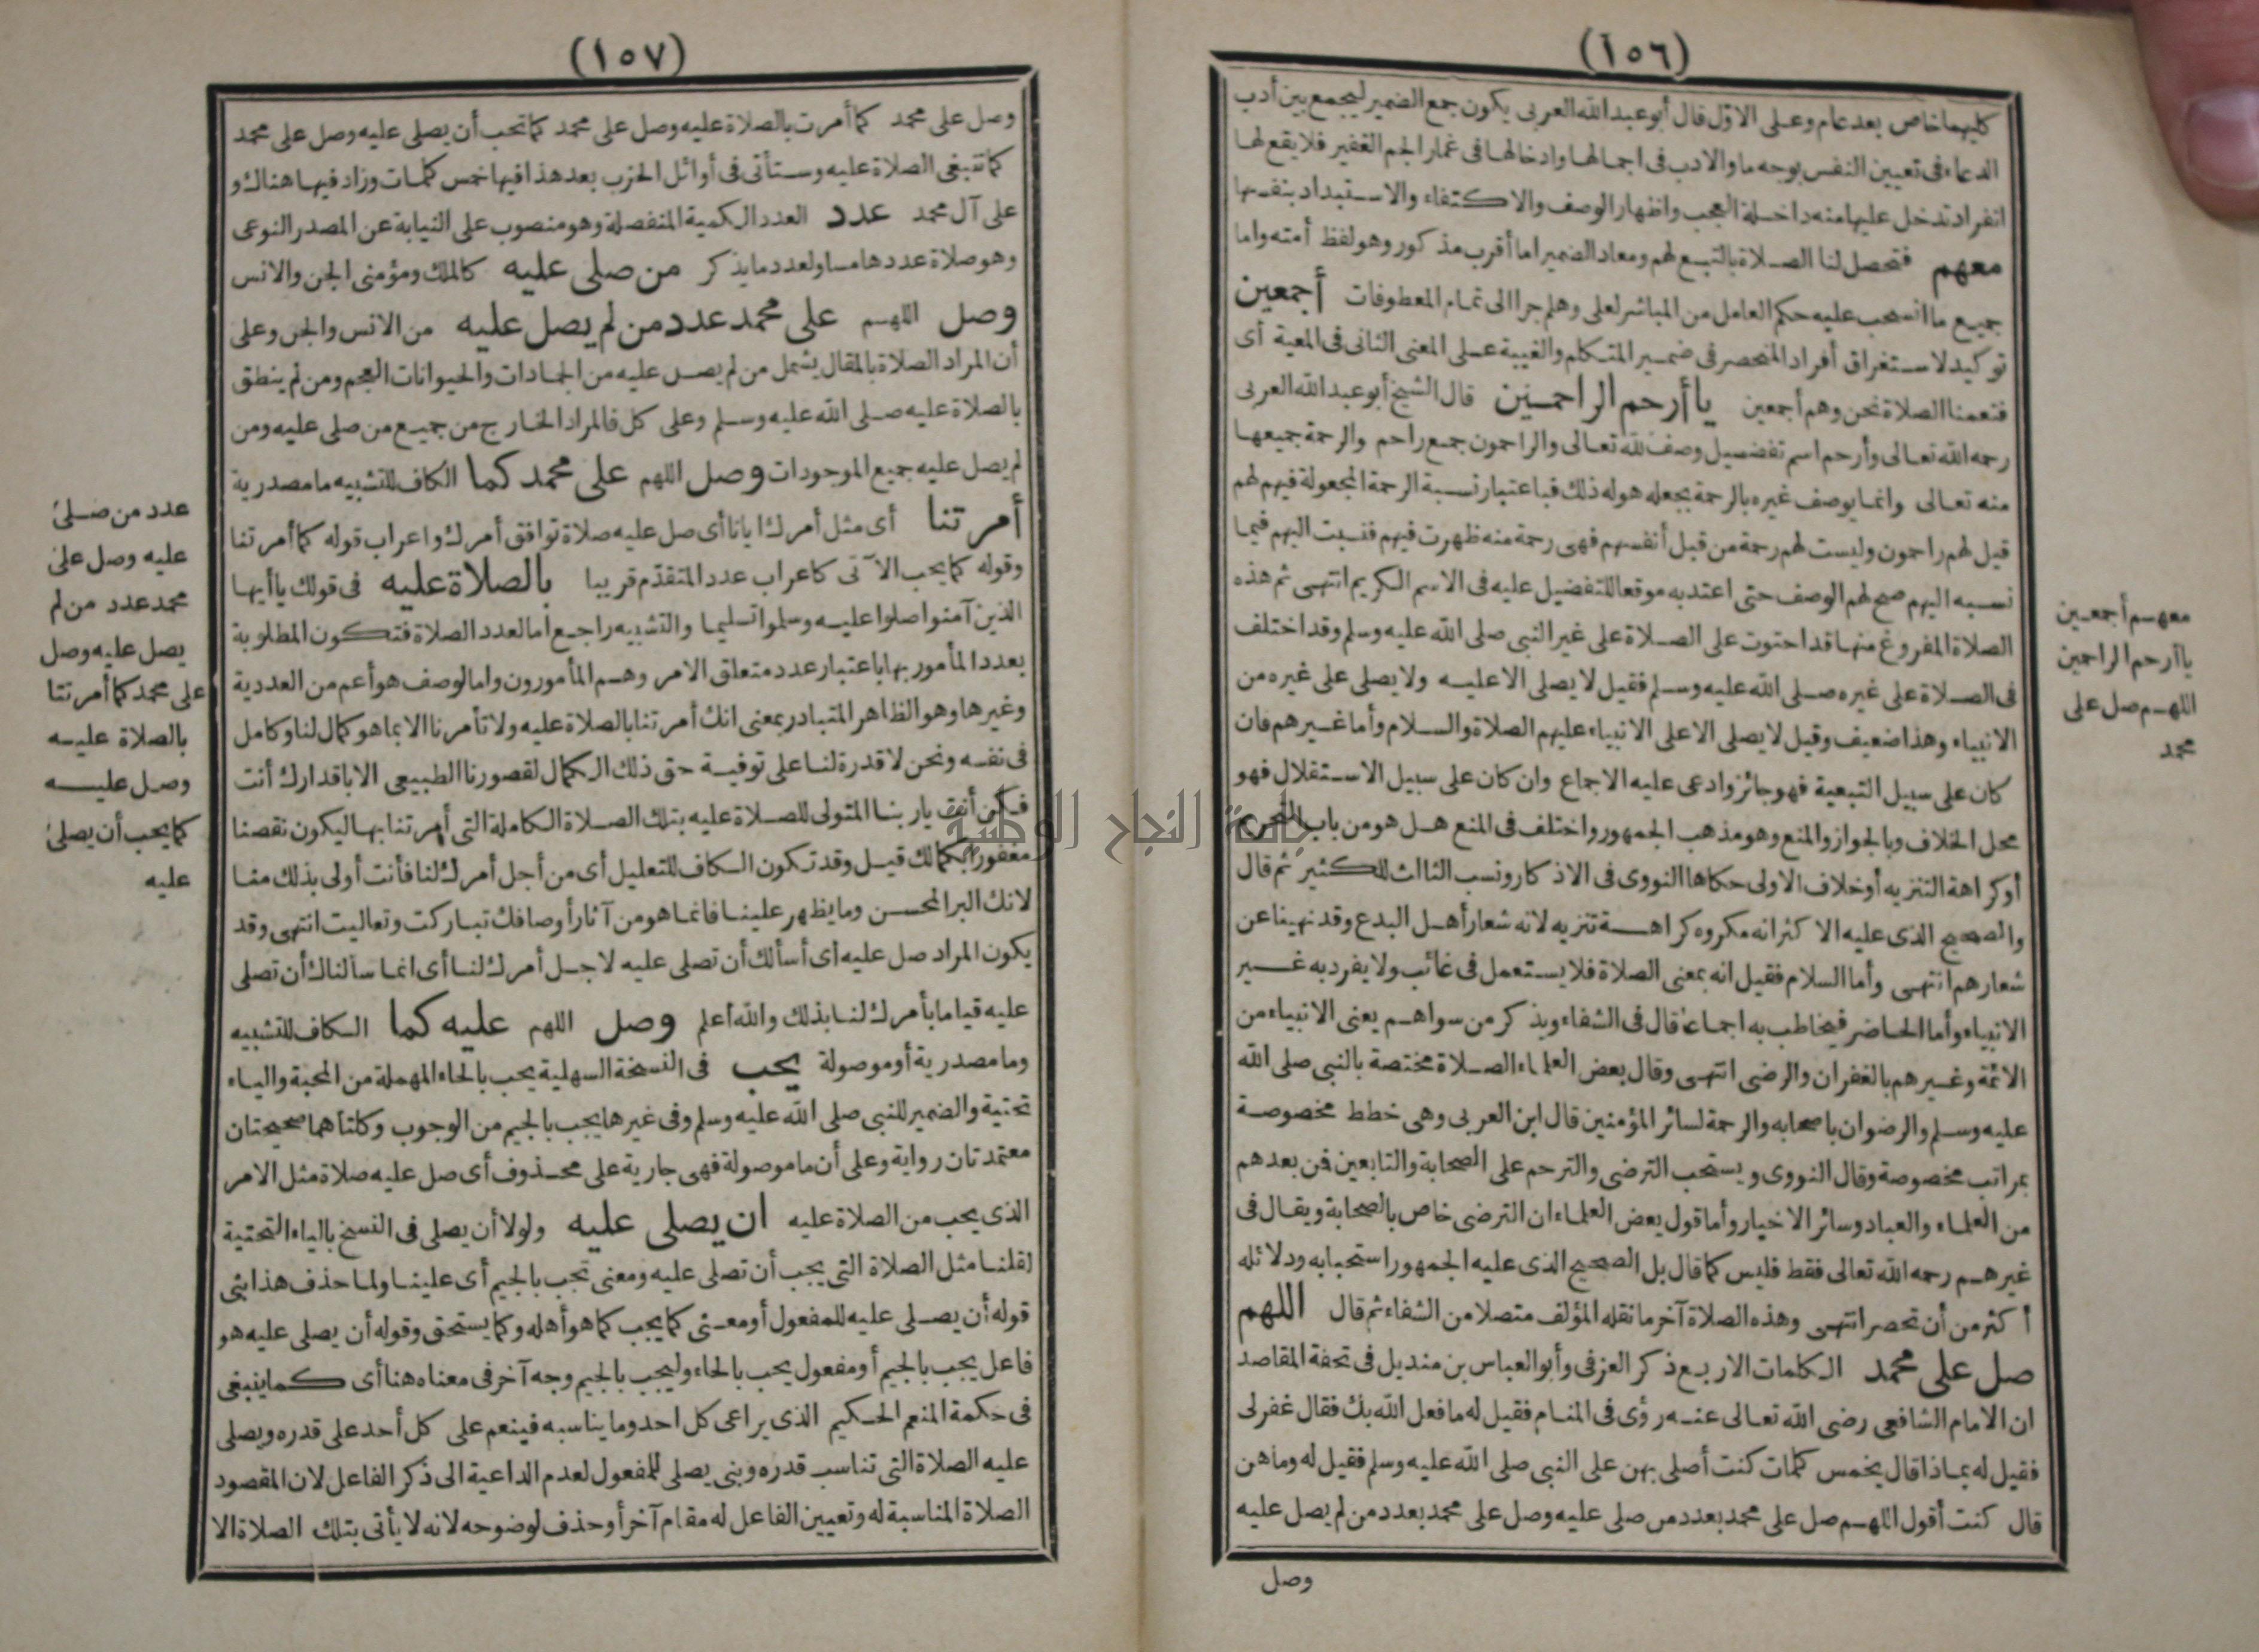 (١٥٦)
كليهما خاص بعد عام وعلى الاوّل قال أبو عبد الله العربى يكون جمع الضمير ليجمع بين أدب
الدعاء فى تعيين النفس بوجه ما والادب فى اجمالها وادخالها فى غمار الجم الغفير فلا يقع لها
انفراد تدخل عليها منه داخلة العجب واظهار الوصف والاكتفاء والاستبداد بنفسها
معهم فتحصل لنا الصلاة بالتبع لهم ومعاد الضمير اما أقرب مذكور وهو لفظ أمته واما
جميع ما انسحب عليه حكم العامل من المباشر لعلى وهلم جرا الى تمام المعطوفات أجمعين
توكيد لاستغراق أفراد المنحصر فى ضمير المتكلم والغيبة على المعنى الثانى فى المعية أى
فتعمنا الصلاة نحن وهم أجمعين يا أرحم الراحمين قال الشيخ أبو عبد الله العربى
رحمه الله تعالى وأرحم اسم تفضيل وصف لله تعالى والراحمون جمع راحم والرحمة جميعها
منه تعالى وانما يوصف غيره بالرحمة بجعله هو له ذلك فباعتبار نسبة الرحمة المجعولة فيهم لهم
قيل لهم راحمون وليست لهم رحمة من قبل أنفسهم فهى رحمة منه ظهرت فيهم فنسبت اليهم فيما
نسبه اليهم صح لهم الوصف حتى اعتد به موقعا للتفضيل عليه فى الاسم الكريم انتهى ثم هذه
الصلاة المفروغ منها قد احتوت على الصلاة على غير النبى صلى الله عليه وسلم وقد اختلف
فى الصلاة على غيره صلى الله عليه وسلم فقيل لا يصلى الا عليه ولا يصلى على غيره من
الانبياء وهذا ضعيف وقيل لا يصلى الا على الانبياء عليهم الصلاة والسلام وأما غيرهم فان
كان على سبيل التبعية فهو جائز وادعى عليه الاجماع وان كان على سبيل الاستقلال فهو
محل الخلاف وبالجواز والمنع وهو مذهب الجمهور واختلف فى المنع هل هو من باب التحريم
أو كراهة التنزيه أو خلاف الاولى حكاها النووى فى الاذكار ونسب الثالث للكثير ثم قال
والصحيح الذى عليه الاكثر انه مكروه كراهة تنزيه لانه شعار أهل البدع وقد نهينا عن
شعارهم انتهى وأما السلام فقيل انه بمعنى الصلاة فلا يستعمل فى غائب ولا يفرد به غير
الانبياء وأما الحاضر فيخاطب به اجماعا قال فى الشفاء ويذكر من سواهم يعنى الانبياء من
الائمة وغيرهم بالغفران والرضى انتهى وقال بعض العلماء الصلاة مختصة بالنبى صلى الله
عليه وسلم والرضوان باصحابه والرحمة لسائر المؤمنين قال ابن العربى وهى خطط مخصوصة
بمراتب مخصوصة وقال النووى ويستحب الترضى والترحم على الصحابة والتابعين فمن بعدهم
من العلماء والعباد وسائر الاخيار وأما قول بعض العلماء ان الترضى خاص بالصحابة ويقال فى
غيرهم رحمه الله تعالى فقط فليس كما قال بل الصحيح الذى عليه الجمهور استحبابه ودلائله
أكثر من أن تحصر انتهى وهذه الصلاة آخر ما نقله المؤلف متصلا من الشفاء ثم قال اللهم
صل على محمد الكلمات الاربع ذكر العزفى وأبو العباس بن منديل فى تحفة المقاصد
ان الامام الشافعى رضى الله تعالى عنه رؤى فى المنام فقيل له ما فعل الله بك فقال غفر لى
فقيل له بماذا قال بخمس كلمات كنت أصلى بهن على النبى صلى الله عليه وسلم فقيل له وما هن
قال كنت أقول اللهم صل على محمد بعدد من صلى عليه وصل على محمد بعدد من لم يصل عليه
وصل
معهم أجمعين
يا أرحم الراحمين
اللهم صل على
محمد
(١٥٧)
وصل على محمد كما أمرت بالصلاة عليه وصل على محمد كما تحب أن يصلى عليه وصل على محمد
كما تنبغى الصلاة عليه وستأتى فى أوائل الحزب بعد هذا فيها خمس كلمات وزاد فيها هناك و
على آل محمد عدد العدد الكمية المنفصلة وهو منصوب على النيابة عن المصدر النوعى
وهو صلاة عددها مساو لعدد ما يذكر من صلى عليه كالملك ومؤمنى الجن والانس
وصل اللهم على محمد عدد من لم يصل عليه من الانس والجن وعلى
أن المراد الصلاة بالمقال يشمل من لم يصل عليه من الجمادات والحيوانات العجم ومن لم ينطق
بالصلاة عليه صلى الله عليه وسلم وعلى كل فالمراد الخارج من جميع من صلى عليه ومن
لم يصل عليه جميع الموجودات وصل اللهم على محمد كما الكاف للتشبيه ما مصدرية
أمرتنا أى مثل أمرك ايانا أى صل عليه صلاة توافق أمرك واعراب قوله كما أمرتنا
وقوله كما يحب الآتى كاعراب عدد المتقدّم قريبا بالصلاة عليه فى قولك يا أيها
الذين آمنوا صلوا عليه وسلموا تسليما والتشبيه راجع اما لعدد الصلاة فتكون المطلوبة
بعدد المأمور بها باعتبار عدد متعلق الامر وهم المأمورون واما لوصف هو أعم من العددية
وغيرها وهو الظاهر المتبادر بمعنى انك أمرتنا بالصلاة عليه ولا تأمرنا الا بما هو كمال لنا وكامل
فى نفسه ونحن لا قدرة لنا على توفية حق ذلك الكمال لقصورنا الطبيعى الا باقدارك أنت
فكن أنت يا ربنا المتولى للصلاة عليه بتلك الصلاة الكاملة التى أمرتنا بها ليكون نقصنا
مغفورا بكمالك قيل وقد تكون الكاف للتعليل أى من أجل أمرك لنا فأنت أولى بذلك منا
لانك البر المحسن وما يظهر علينا فانما هو من آثار أوصافك تباركت وتعاليت انتهى وقد
يكون المراد صل عليه أى أسألك أن تصلى عليه لاجل أمرك لنا أى انما سألناك أن تصلى
عليه قياما بأمرك لنا بذلك والله أعلم وصل اللهم عليه كما الكاف للتشبيه
وما مصدرية أو موصولة يحب فى النسخة السهلية يحب بالحاء المهملة من المحبة والياء
تحتية والضمير للنبى صلى الله عليه وسلم وفى غيرها يجب بالجيم من الوجوب وكلتاهما صحيحتان
معتمدتان رواية وعلى أن ما موصولة فهى جارية على محذوف أى صل عليه صلاة مثل الامر
الذى يجب من الصلاة عليه ان يصلى عليه ولولا أن يصلى فى النسخ بالياء التحتية
لقلنا مثل الصلاة التى يجب أن تصلى عليه ومعنى تجب بالجيم أى علينا ولما حذف هذا بنى
قوله أن يصلى عليه للمفعول أو معنى كما يجب كما هو أهله وكما يستحق وقوله أن يصلى عليه هو
فاعل يجب بالجيم أو مفعول يحب بالحاء وليجب بالجيم وجه آخر فى معناه هنا أى كما ينبغى
فى حكمة المنعم الحكيم الذى يراعى كل احد وما يناسبه فينعم على كل أحد على قدره ويصلى
عليه الصلاة التى تناسب قدره وبنى يصلى للمفعول لعدم الداعية الى ذكر الفاعل لان المقصود
الصلاة المناسبة له وتعيين الفاعل له مقام آخر أو حذف لوضوحه لانه لا يأتى بتلك الصلاة الا
عدد من صلى
عليه وصل على
محمد عدد من لم
يصل عليه وصل
على محمد كما أمرتنا
بالصلاة عليه
وصل عليه
كما يحب أن يصلى
عليه
جامعة النجاح الوطنية